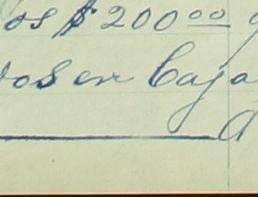 os $ 200 00
dos en Caja